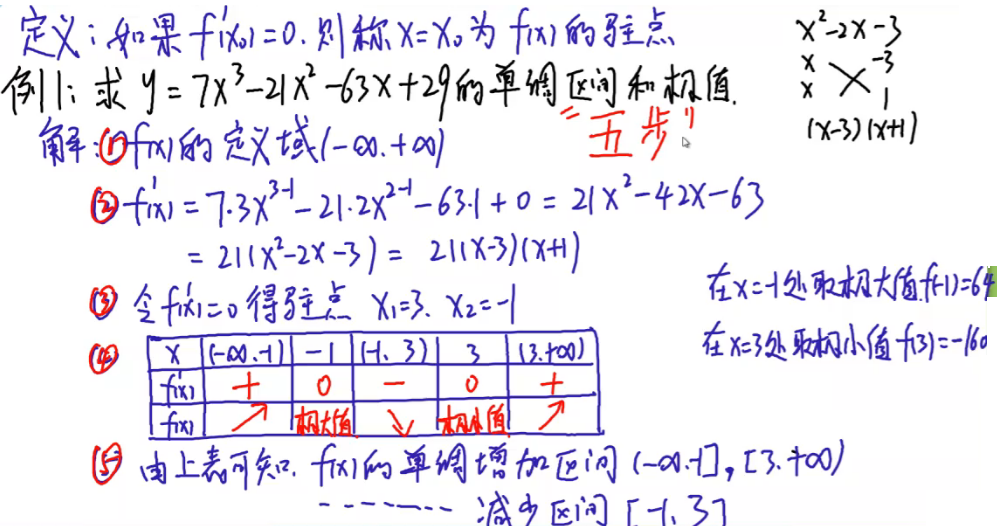 定义:如果f'(x₀)=0.则称x=x₀为f(x)的驻点
例1:求 y=7x³-21x²-63x+29的单调区间和极值.
"五步"
x²-2x-3
x -3
x 1
(x-3)(x+1)
解:①f(x)的定义域(-∞.+∞)
②f'(x)=7·3x³⁻¹-21·2x²⁻¹-63·1+0=21x²-42x-63
=21(x²-2x-3)= 21(x-3)(x+1)
③ 令f'(x)=0得驻点 x₁=3. x₂=-1
④ x (-∞.-1) -1 (-1.3) 3 (3.+∞)
f'(x) + 0 - 0 +
f(x) ↗ 极大值 ↘ 极小值 ↗
在x=-1处取极大值f(-1)=64
在x=3处取极小值f(3)=-160
⑤ 由上表可知. f(x)的单调增加区间(-∞.-1],[3.+∞)
------- 减少区间[-1.3]